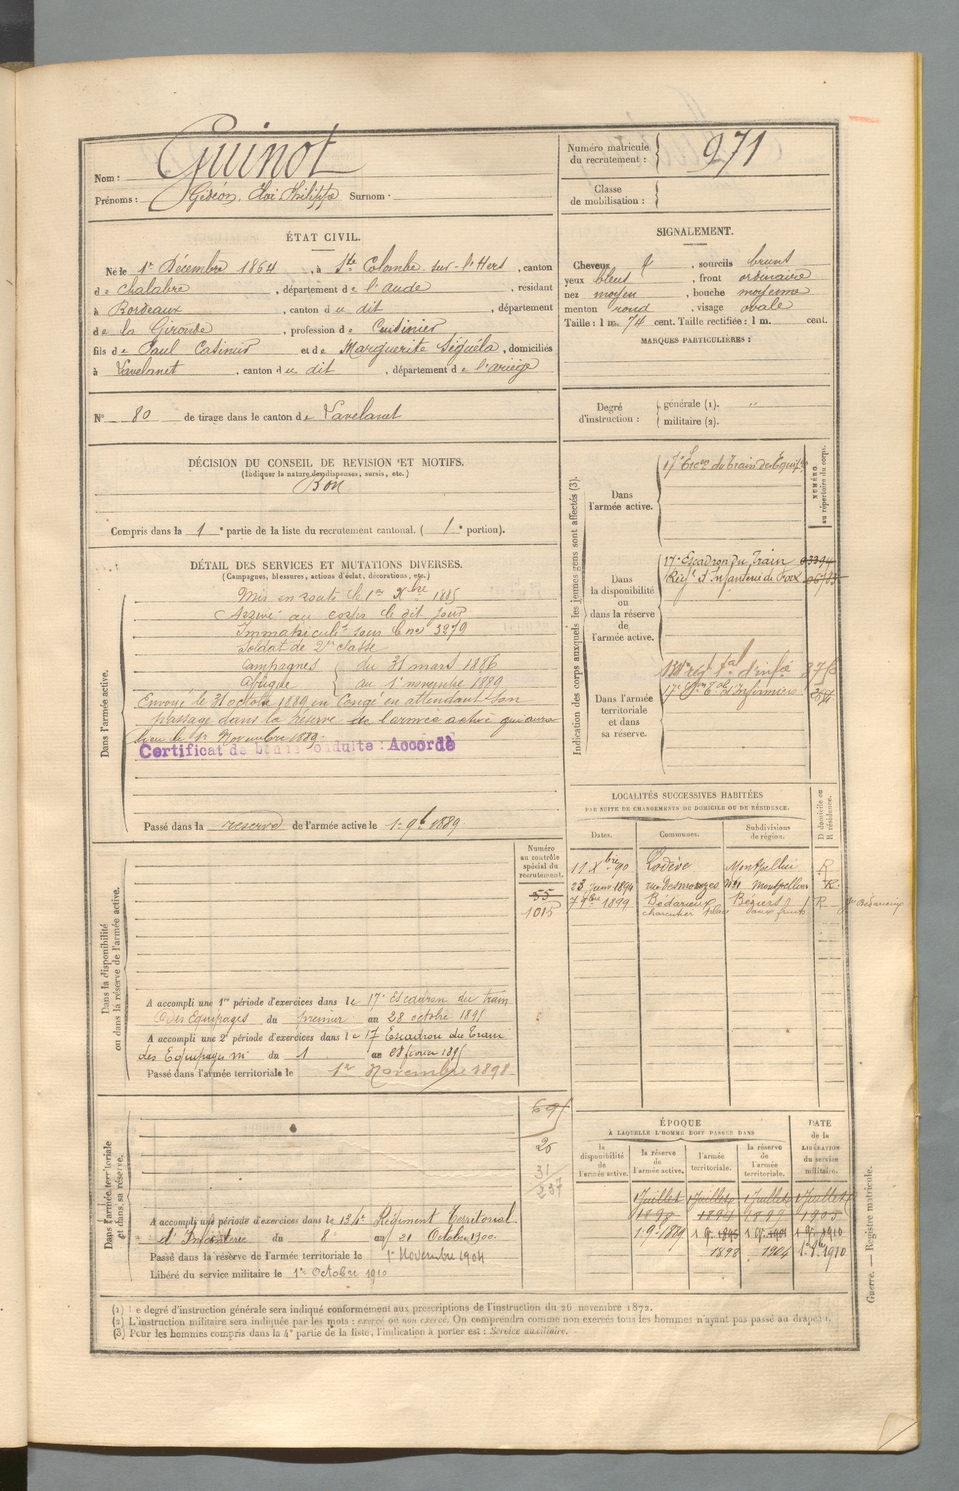 Nom : Guinot
Prénoms : Gédéon, Eloi Philippe Surnom :
Numéro matricule du recrutement : 971
Classe de mobilisation :
ÉTAT CIVIL.
Né le 1er Décembre 1864, à Ste Colombe sur-l'Hers, canton
de Chalabre, département de l'aude, résidant
à Bordeaux, canton du dit, département
de la Gironde, profession de Cuisinier
fils de Paul Casimir et de Marguerite Séguéla, domiciliés
à Lavelanet, canton du dit, département de l'ariège
SIGNALEMENT.
Cheveux , sourcils bruns
yeux bleus, front ordinaire
nez moyen, bouche moyenne
menton rond, visage ovale
Taille : 1 m. 74 cent. Taille rectifiée : 1 m. cent.
MARQUES PARTICULIÈRES :
No 80 de tirage dans le canton de Lavelanet
Degré d'instruction : générale (1). "
militaire (2).
DÉCISION DU CONSEIL DE REVISION ET MOTIFS.
(Indiquer la nature des dispenses, sursis, etc.)
Bon
Compris dans la 1e partie de la liste du recrutement cantonal. ( 1e portion).
DÉTAIL DES SERVICES ET MUTATIONS DIVERSES.
(Campagnes, blessures, actions d'éclat, décorations, etc.)
Dans l'armée active.
Mis en route le 1er Xbre 1885
Arrivé au corps le dit jour
Immatriculé sous le no 3279
Soldat de 2e classe
Campagnes du 31 mars 1886
Afrique au 1er novembre 1889
Envoyé le 31 octobre 1889 en Congé en attendant son
passage dans la réserve de l'armée active qui aura
lieu le 1er Novembre 1889.
Certificat de bonne conduite : Accordé
Passé dans la réserve de l'armée active le 1er 9b 1889.
Indication des corps auxquels les jeunes gens sont affectés (3).
NUMÉRO au répertoire du corps.
Dans l'armée active.
17e Escon du Train des Equip.
Dans la disponibilité ou dans la réserve de l'armée active.
17e Escadron du Train
Régt d'Infanterie de Foix
Dans l'armée territoriale et dans sa réserve.
LOCALITÉS SUCCESSIVES HABITÉES
PAR SUITE DE CHANGEMENTS DE DOMICILE OU DE RÉSIDENCE.
Dates. Communes. Subdivisions de région. D domicile ou R résidence.
11 Xbre 90 Lodève Montpellier R
23 Janv 1894 Montpellier R.
7 1899 Bédarieux Béziers R
Dans la disponibilité ou dans la réserve de l'armée active.
Numéro au contrôle spécial du recrutement.
55
1015
A accompli une 1re période d'exercices dans le 17e Escadron du train
des Equipages du premier au 28 octobre 1891
A accompli une 2e période d'exercices dans le 17 Escadron du Train
des Equipages du 1 au 28 février 1895
Passé dans l'armée territoriale le 1er Novembre 1898
Dans l'armée territoriale et dans sa réserve.
20
31
237
A accompli une période d'exercices dans le 134e Régiment Territorial
d'Infanterie du 8 au 21 Octobre 1900.
Passé dans la réserve de l'armée territoriale le 1er Novembre 1904
Libéré du service militaire le 1er Octobre 1910
ÉPOQUE
À LAQUELLE L'HOMME DOIT PASSER DANS
la disponibilité de l'armée active. la réserve de l'armée active. l'armée territoriale. la réserve de l'armée territoriale.
DATE de la LIBÉRATION du service militaire.
1 Juillet 1 Juillet 1 Juillet 1 Juillet
1890 1894 1899 1905
1 9b 1889 1 9b 1895 1 9b 1901 1 9b 1910
1898 1904 1910
Guerre. — Registre matricule.
(1) Le degré d'instruction générale sera indiqué conformément aux prescriptions de l'instruction du 26 novembre 1872.
(2) L'instruction militaire sera indiquée par les mots : exercé ou non exercé. On comprendra comme non exercés tous les hommes n'ayant pas passé au drapeau.
(3) Pour les hommes compris dans la 4e partie de la liste, l'indication à porter est : Service auxiliaire.